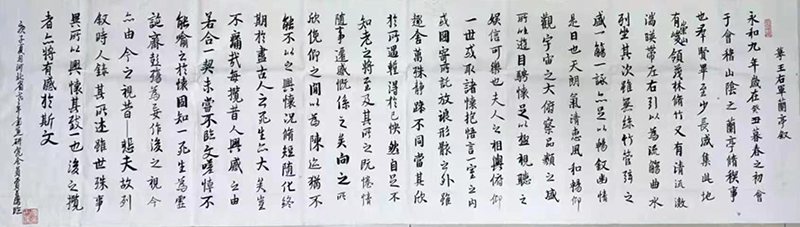 摹王右軍蘭亭叙
永和九年歲在癸丑暮春之初會
于會稽山陰之蘭亭脩稧事
也群賢畢至少長咸集此地
有崇山峻領茂林脩竹又有清流激
湍暎帶左右引以為流觴曲水
列坐其次雖無絲竹管弦之
盛一觴一詠亦足以暢叙幽情
是日也天朗氣清惠風和暢仰
觀宇宙之大俯察品類之盛
所以遊目騁懷足以極視聽之
娛信可樂也夫人之相與俯仰
一世或取諸懷抱悟言一室之內
或因寄所託放浪形骸之外雖
趣舍萬殊靜躁不同當其欣
於所遇暫得於己怏然自足不
知老之將至及其所之既惓情
隨事遷感慨係之矣向之所
欣俛仰之間以為陳迹猶不
能不以之興懷況脩短隨化終
期於盡古人云死生亦大矣豈
不痛哉每攬昔人興感之由
若合一契未嘗不臨文嗟悼不
能喻之於懷固知一死生為虛
誕齊彭殤為妄作後之視今
亦由今之視昔悲夫故列
叙時人錄其所述雖世殊事
異所以興懷其致一也後之攬
者亦將有感於斯文
庚子夏月河北省書画研究會員臨